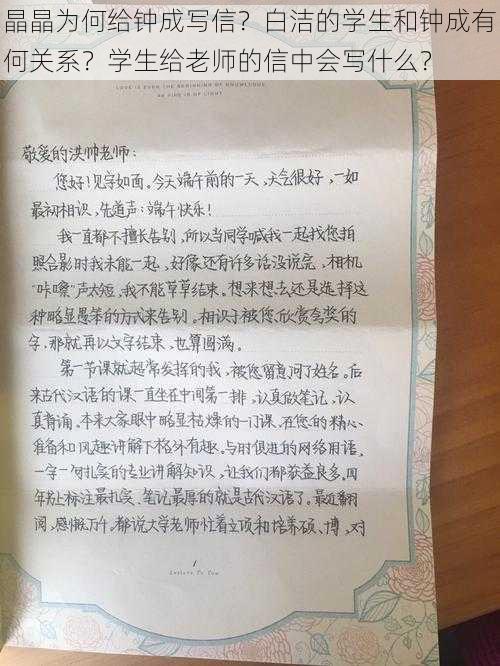 晶晶为何给钟成写信？白洁的学生和钟成有
何关系？学生给老师的信中会写什么？
LOVE IS EVER THE BEGINNING OF KNOWLEDGE
AS FIRE IS OF LIGHT
敬爱的洪帅老师：
您好！见字如面。今天端午前的一天，天气很好，一如
最初相识，先道声：端午快乐！
我一直都不擅长告别，所以当同学喊我一起找您拍
照合影时我未能一起，好像还有许多话没说完，相机
"咔嚓"声太短，我不能草草结束。想来想去还是选择这
种略显愚笨的方式来告别。相识于被您欣赏夸奖的
字，那就再以文字结束，也算圆满。
第一节课就超常发挥的我，被您留意问了姓名。后
来古代汉语的课一直坐在中间第一排，认真做笔记，认
真背诵。本来大家眼中略显枯燥的一门课，在您的精心
准备和风趣讲解下格外有趣。与时俱进的网络用语，
一字一句扎实的专业讲解知识，让我们都获益良多。四
年标注最扎实、笔记最厚的就是古代汉语了。最近翻
阅，感慨万千，都说大学老师忙着立项和培养硕、博，对
1
Letters To You